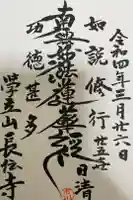 令和四年三月廿六日
如説修行
廿五世
日清
南無妙法蓮華経
功徳甚多
長伝寺